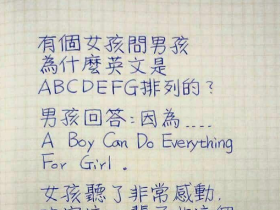 有個女孩問男孩
為什麼英文是
ABCDEFG排列的?
男孩回答:因為....
A Boy Can Do Everything
For Girl.
女孩聽了非常感動,